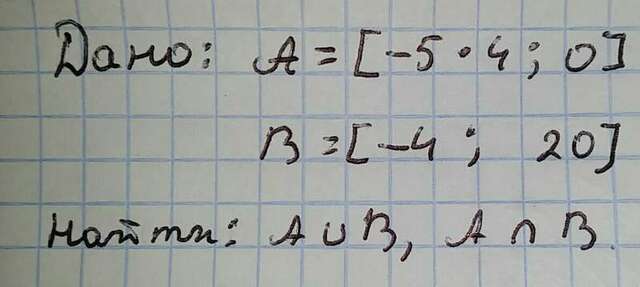 Дано: A = [-5·4; 0]
B = [-4; 20]
Найти: A ∪ B, A ∩ B.